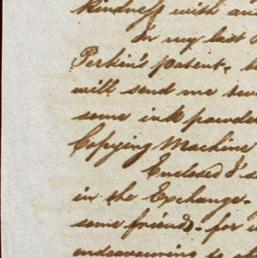 kindness with an
In my last
Perkin's patent,
will send me
some ink powder
Copying Machine
Enclosed I s
in the Exchange.
some friends. for
endeavouring to